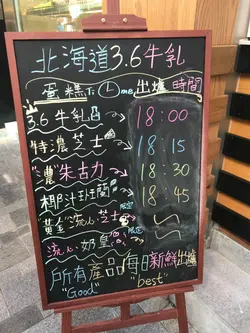 北海道3.6牛乳
蛋糕Time 出爐時間
3.6牛乳 18:00
特濃芝士 18:15
"濃"朱古力 18:30
椰汁班蘭 限定 18:45
"黃金"流心芝士 限定
流心奶皇
所有產品每日新鮮出爐
"Good" "best"